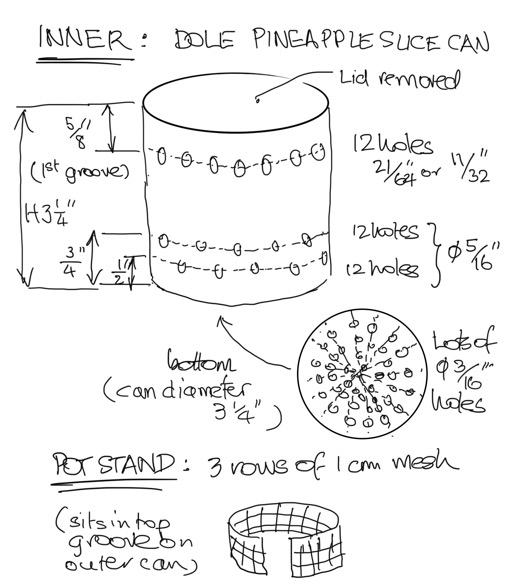 INNER: DOLE PINEAPPLE SLICE CAN
Lid removed
5/8"
(1st groove)
H3 1/4"
3/4"
1/2"
12 holes
21/64" or 11/32"
12 holes
12 holes
Φ5/16"
bottom
(can diameter
3 1/4")
Lots of
Φ3/16"
holes
POT STAND: 3 rows of 1 cm mesh
(sits in top
groove on
outer can)